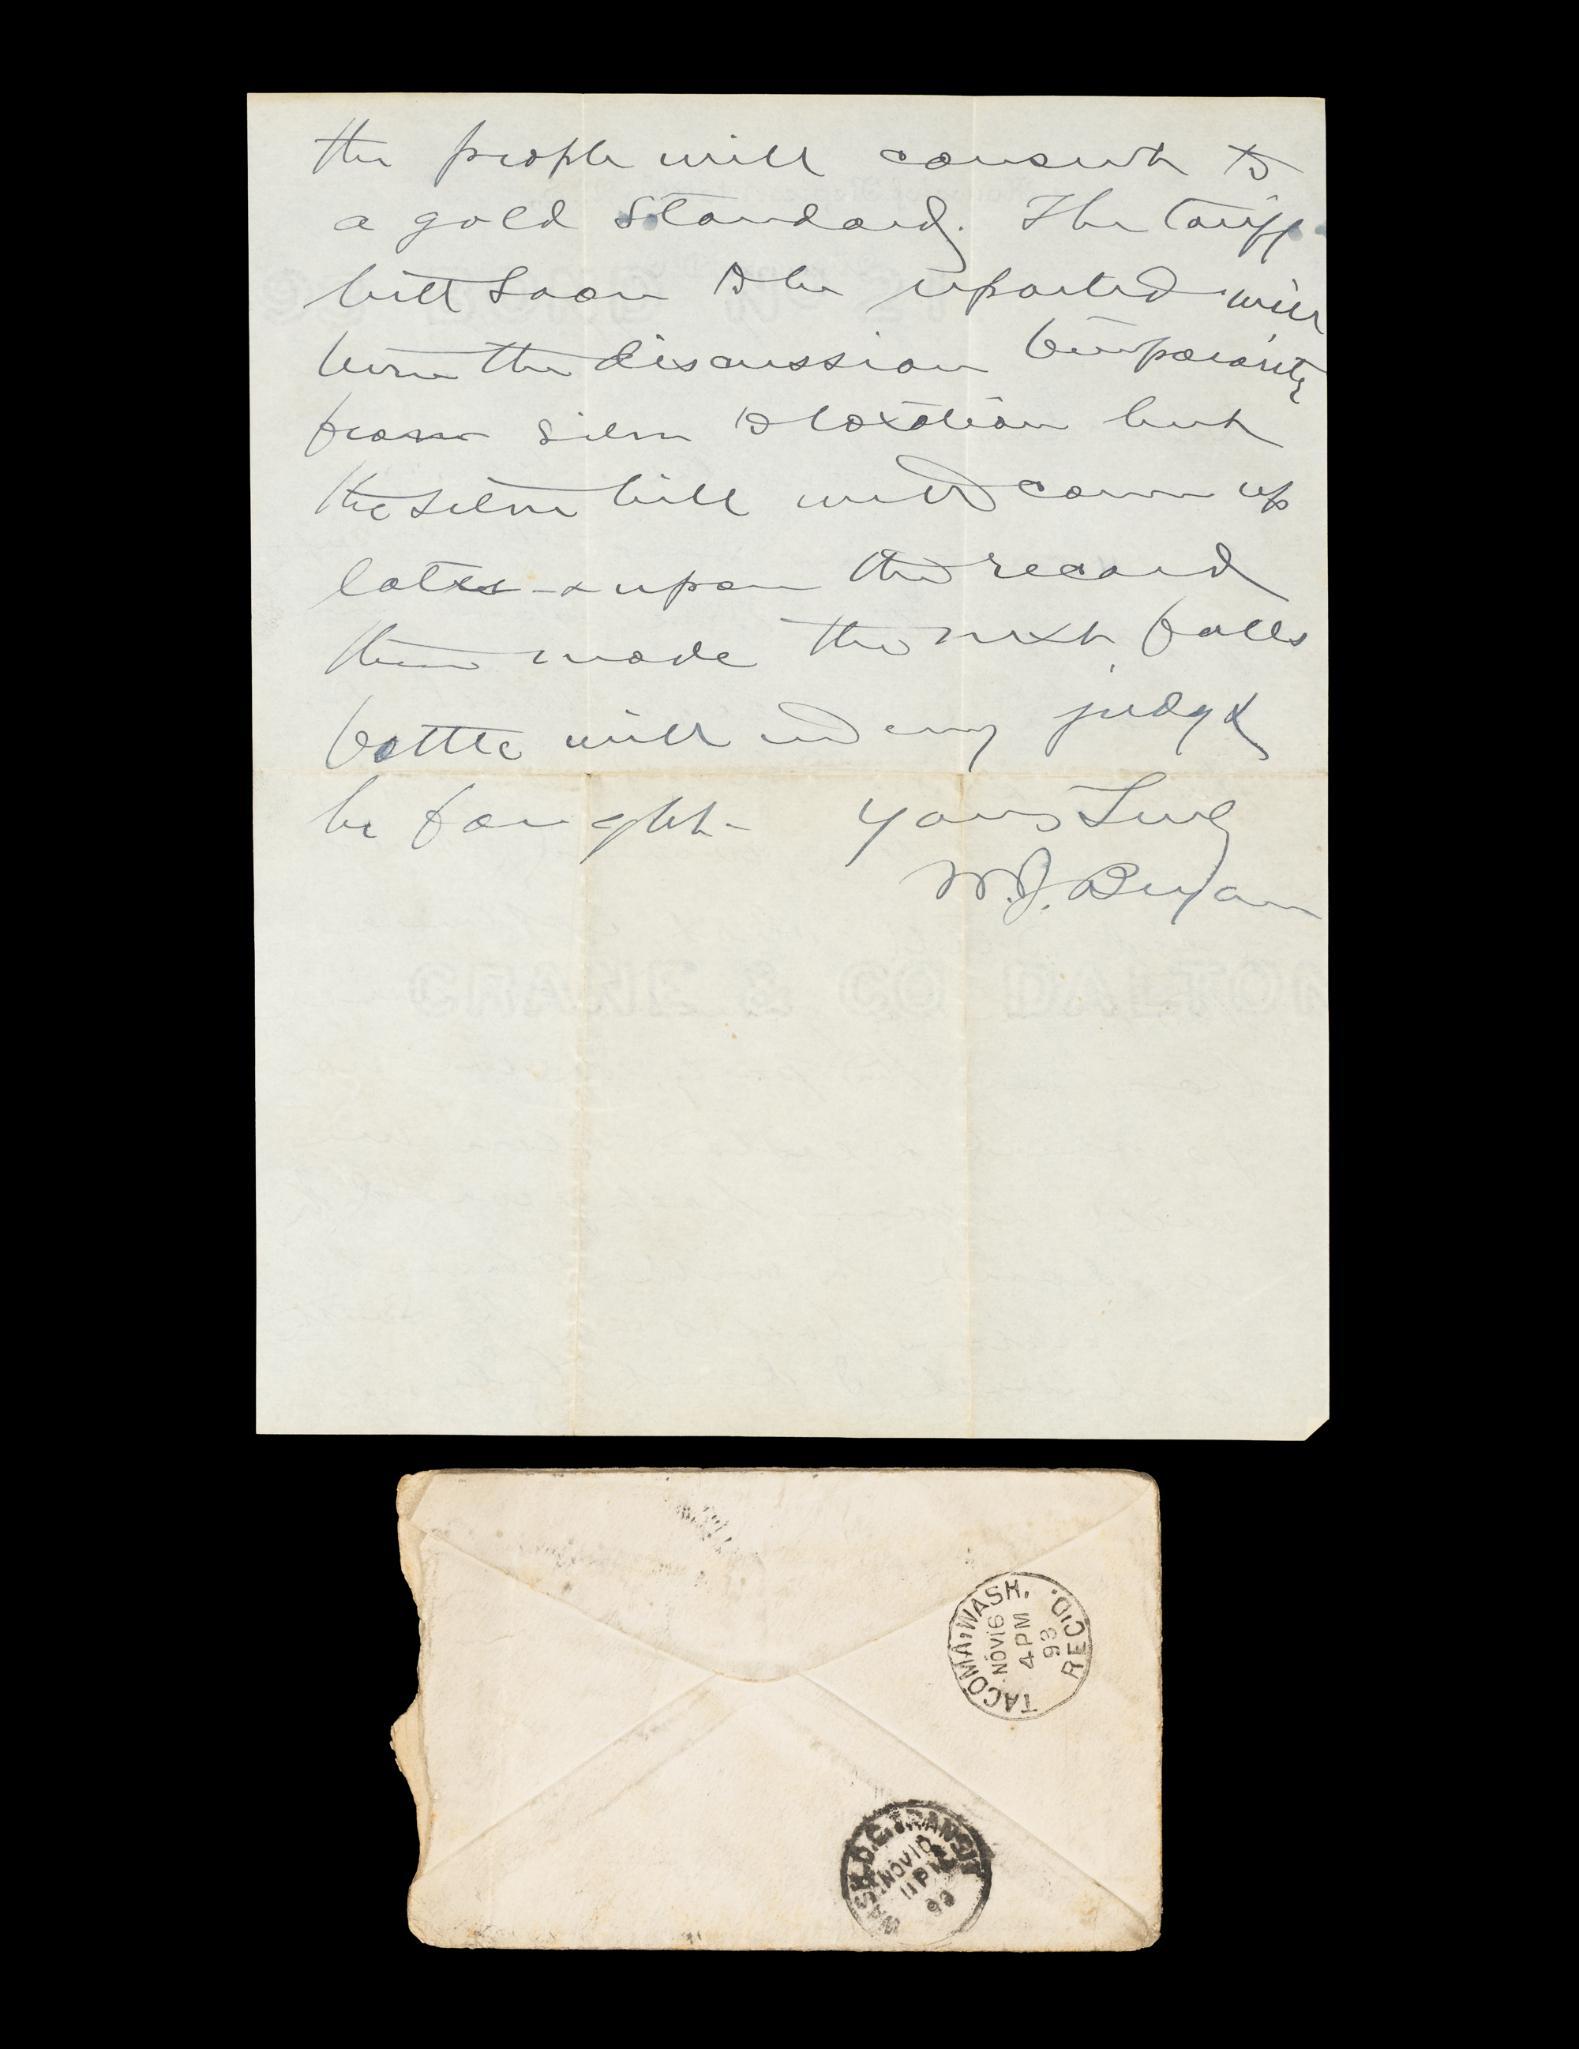 the people will consent to
a gold standard. The tariff
bill soon to be reported will
turn the discussion temporarily
from silver to taxation but
the silver bill will come up
later & upon the record
then made the next falls
battle will in my judgt
be fought - Yours Truly
W. J. Bryan
CRANE & CO DALTON
TACOMA, WASH.
NOV 16
4 PM
93
REC'D.
WASH. D.C. TRANSIT
NOV 10
11 PM
93